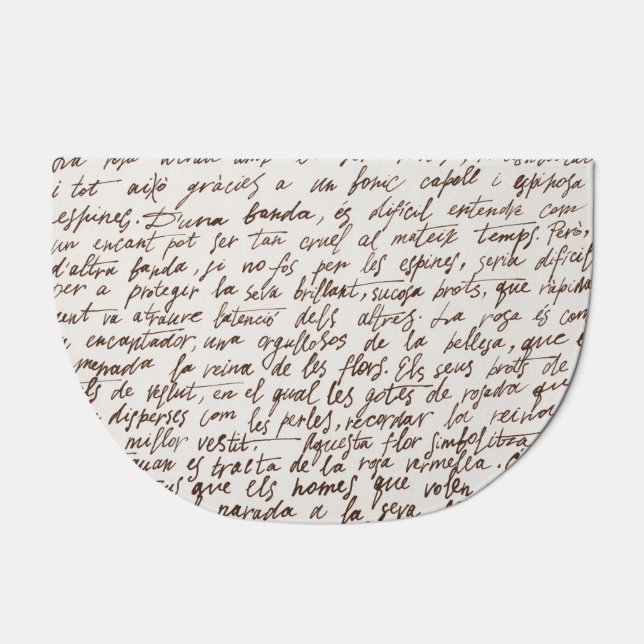 i tot això gràcies a un fonic capell i espinosa
espines. D'una banda, és difícil entendre com
un encant pot ser tan cruel al mateix temps. Però,
d'altra banda, si no fos per les espines, seria difícil
per a protegir la seva brillant, sucosa brots, que ràpida
ment va atraure l'atenció dels altres. La rosa és com
encantador, una orgullosos de la bellesa, que
menada la reina de les flors. Els seus brots de
ls de vellut, en el qual les gotes de rosada que
disperses com les perles, recordar la reina
millor vestit. Aquesta flor simbolitza
quan es tracta de la roja vermella.
que els homes que volen
narada a la seva